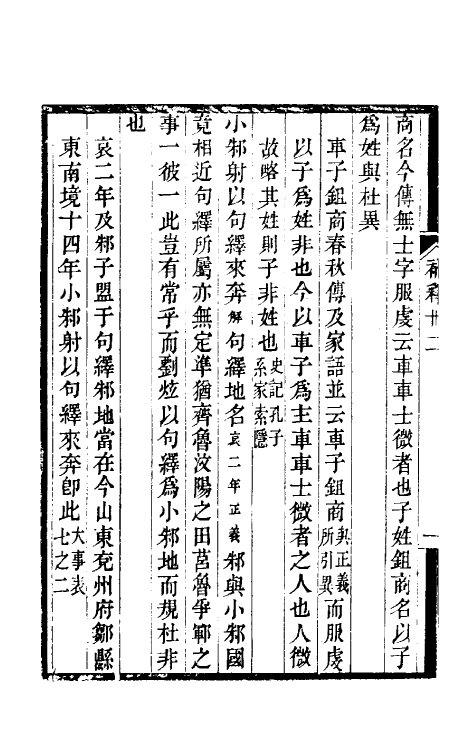 商名今傳無士字服虔云車車士微者也子姓鉏商名以子
為姓與杜異
車子鉏商春秋傳及家語並云車子鉏商與正義所引異而服虔
以子為姓非也今以車子為主車車士微者之人也人微
故略其姓則子非姓也史記孔子系家索隱
小邾射以句繹來奔解句繹地名哀二年正義邾與小邾國
竟相近句繹所屬亦無定準猶齊魯汶陽之田莒魯爭鄆之
事一彼一此豈有常乎而劉炫以句繹為小邾地而規杜非
也
哀二年及邾子盟于句繹邾地當在今山東兗州府鄒縣
東南境十四年小邾射以句繹來奔卽此大事表七之二
補釋卅二
一